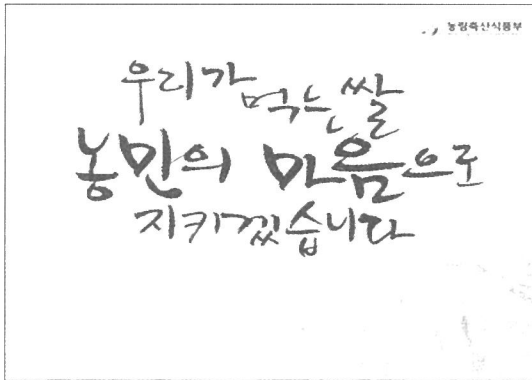 농림축산식품부
우리가 먹는 쌀
농민의 마음으로
지키겠습니다